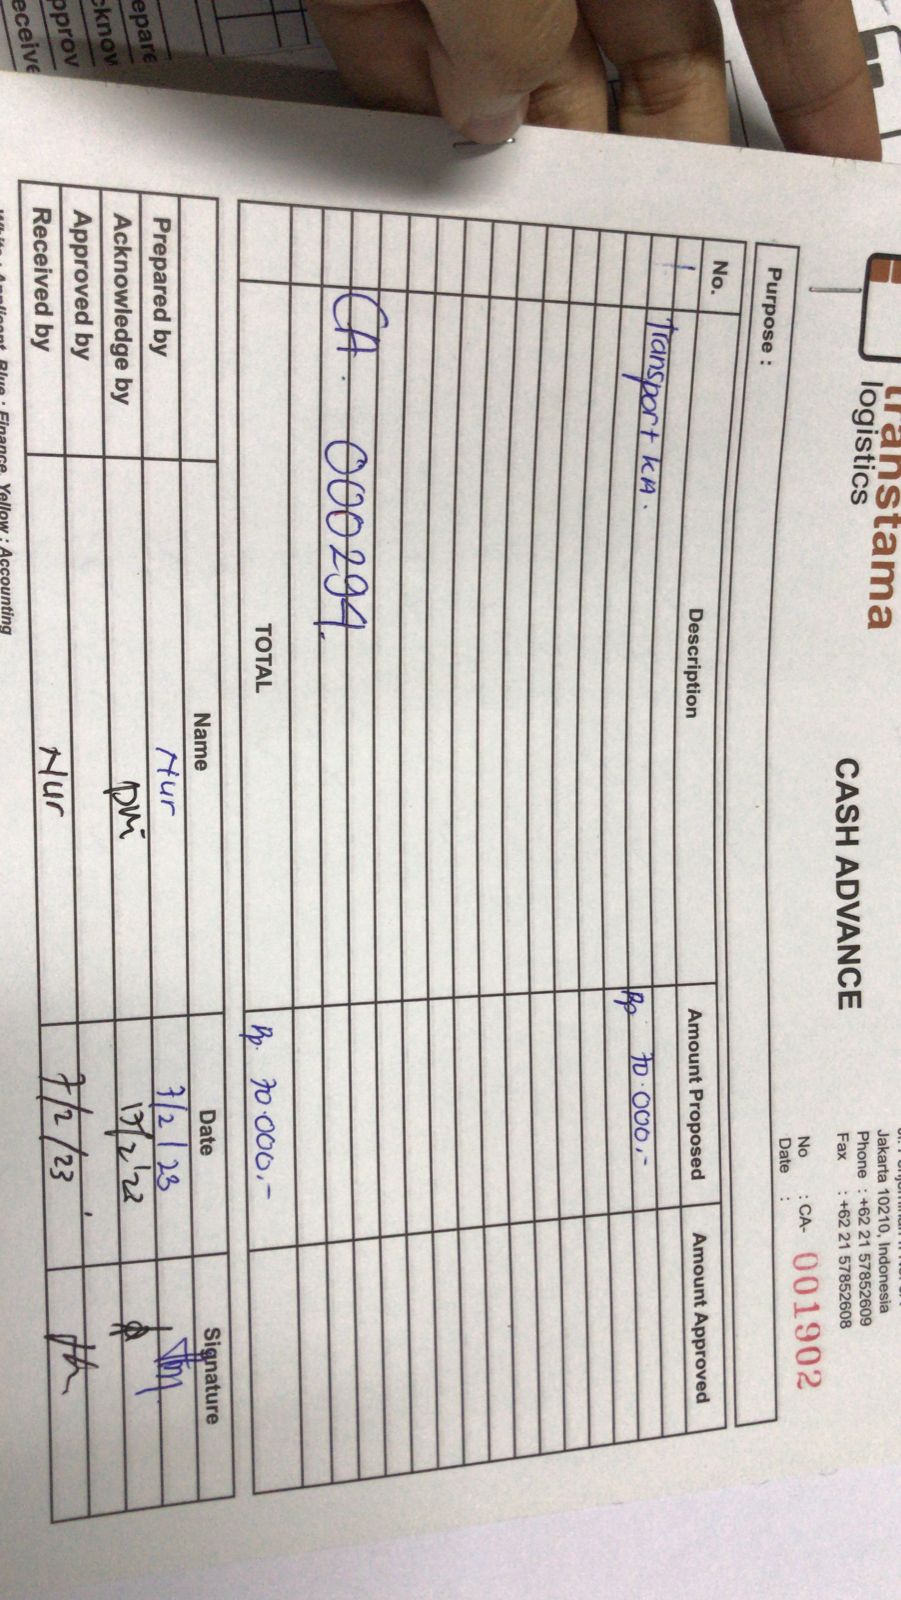 transtama
logistics
CASH ADVANCE
Jakarta 10210, Indonesia
Phone : +62 21 57852609
Fax : +62 21 57852608
No : CA- 001902
Date :
Purpose :
No. Description Amount Proposed Amount Approved
1 Transport kA. Rp 70.000,-
CA. 000294.
TOTAL Rp. 70.000,-
Name Date Signature
Prepared by Nur 7/2/23
Acknowledge by Dwi
Approved by
Received by Nur 7/2/23
White : Applicant, Blue : Finance, Yellow : Accounting
epare
cknov
pprov
eceive